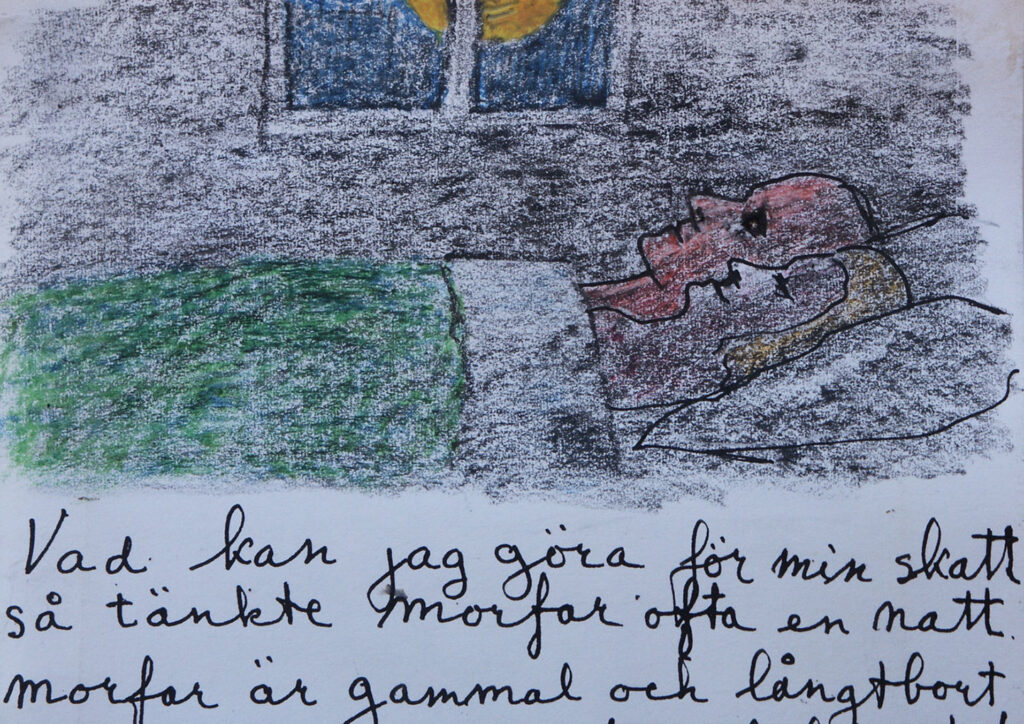 Vad kan jag göra för min skatt
så tänkte morfar ofta en natt.
morfar är gammal och långtbort